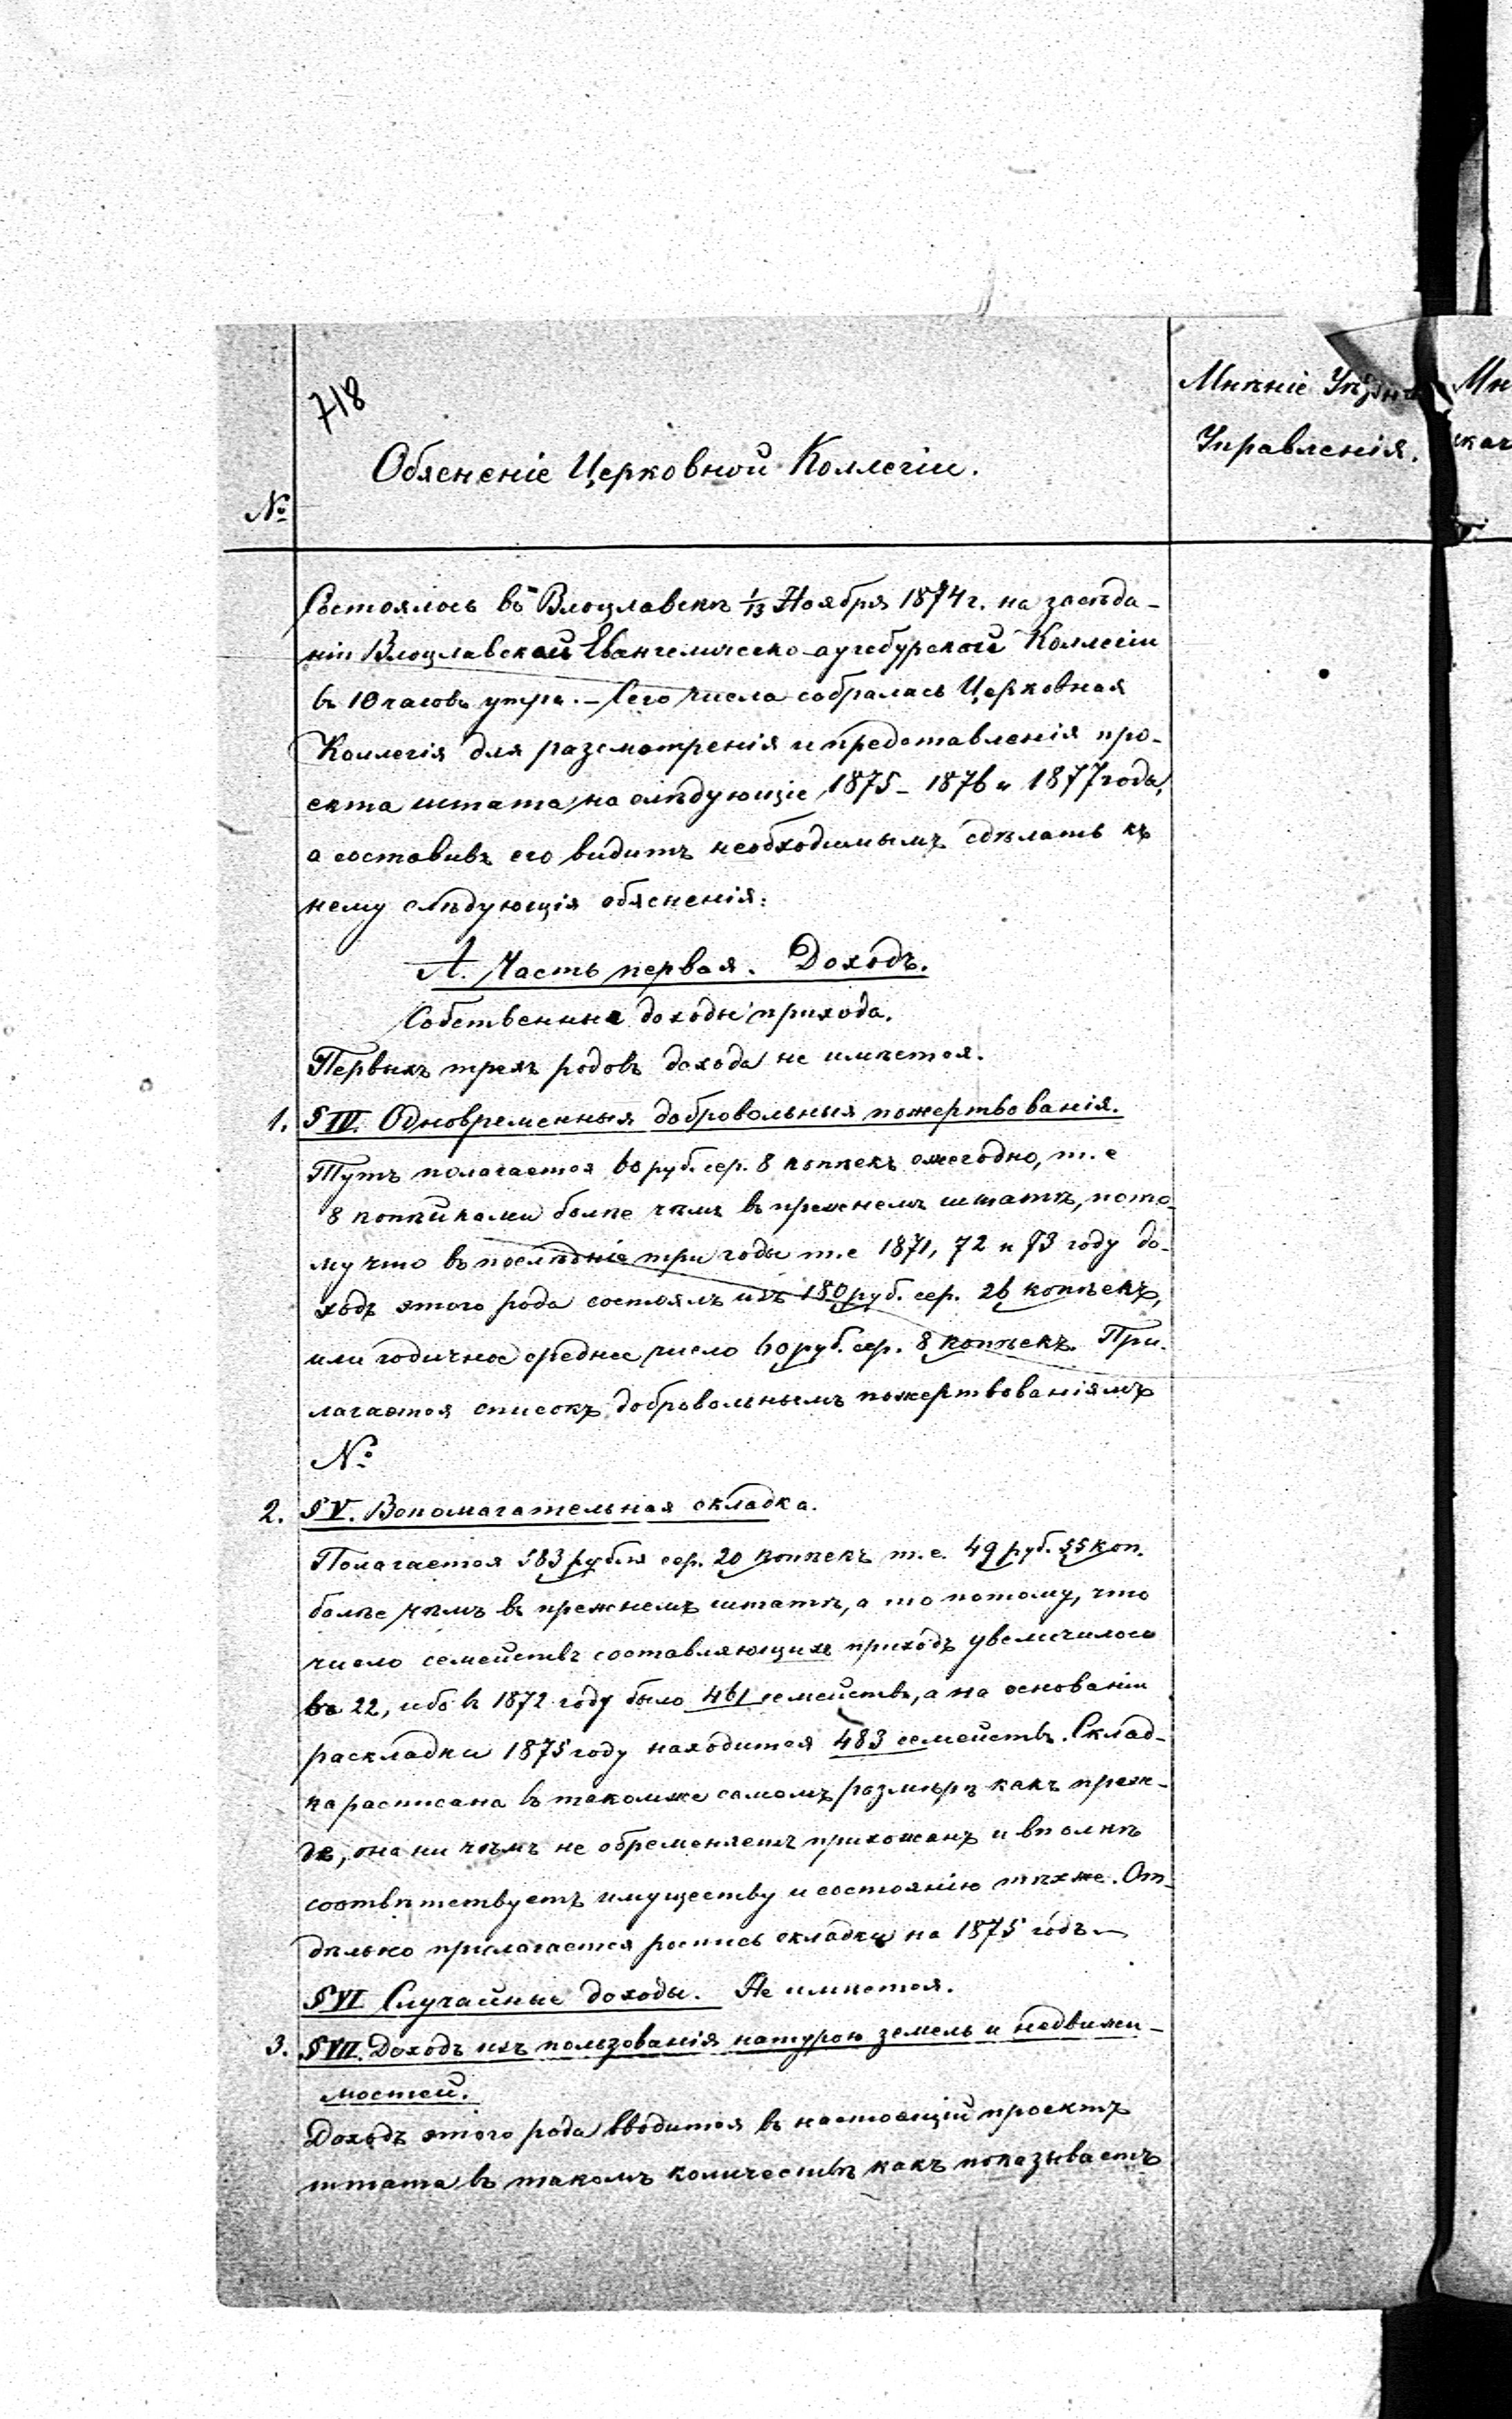 718
Мнѣніе Уѣздн
Мн
Управленія.
Обясненіе Церковной Коллегіи.
№
Состоялось въ Влоцлавскѣ 1/13 Ноября 1874 г. на засѣда-
ніи Влоцлавской Евангелическо-аугсбурской Коллегіи
въ 10 часовъ утра. – Сего числа собралась Церковная
Коллегія для разсмотренія и представленія про-
екта штата на слѣдующіе 1875 – 1876 и 1877 года,
а составивъ его видитъ необходимымъ сдѣлать къ
нему слѣдующія обясненія:
А. Часть первая. Доходъ.
Собственные доходы прихода.
Первыхъ трехъ родовъ дохода не имѣется.
1. § IV. Одновременныя добровольныя пожертвованія.
Тутъ полагается 60 руб. сер. 8 копѣекъ ежегодно, т. е
8 копѣйками болѣе чѣмъ въ прежнемъ штатѣ, пото-
му что въ послѣдніе три годы т. е 1871, 72 и 73 году до-
ходъ этого рода состоялъ изъ 180 руб. сер. 26 копѣекъ,
или годичное среднее число 60 руб. сер. 8 копѣекъ. При-
лагается списокъ добровольнымъ пожертвованіямъ
№
2. § V. Вспомагательная складка.
Полагается 583 рубля сер. 20 копѣекъ т. е. 49 руб. 55 коп.
болѣе чѣмъ въ прежнемъ штатѣ, а то потому, что
число семействъ составляющихъ приходъ увеличилось
въ 22, ибо въ 1872 году было 461 семействъ, а на основаніи
раскладки 1875 году находится 483 семействъ. Склад-
ка расписана въ такомже самомъ розмѣрѣ какъ преж-
де, она ни чѣмъ не обременяетъ прихожанъ и вполнѣ
соотвѣтствуетъ имуществу и состоянію тѣхже. От-
дѣльно прилагается роспись складки на 1875 годъ. –
§ VI Случайные доходы. Не имѣется.
3. § VII. Доходъ изъ пользованія натурою земель и недвижи-
мостей.
Доходъ этого рода вводится въ настоящій проектъ
штата въ такомъ количествѣ какъ показываетъ